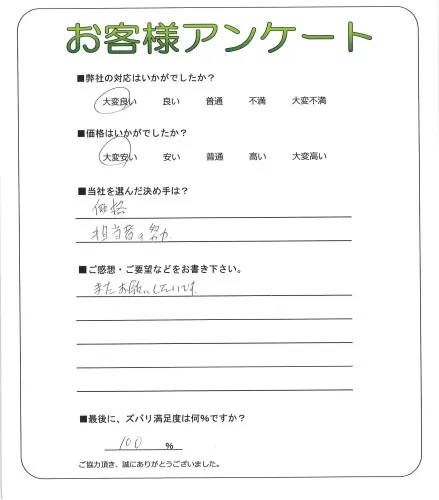 お客様アンケート
■弊社の対応はいかがでしたか？
大変良い 良い 普通 不満 大変不満
■価格はいかがでしたか？
大変安い 安い 普通 高い 大変高い
■当社を選んだ決め手は？
価格
担当者の努力
■ご感想・ご要望などをお書き下さい。
またお願いしたいです
■最後に、ズバリ満足度は何%ですか？
100 %
ご協力頂き、誠にありがとうございました。